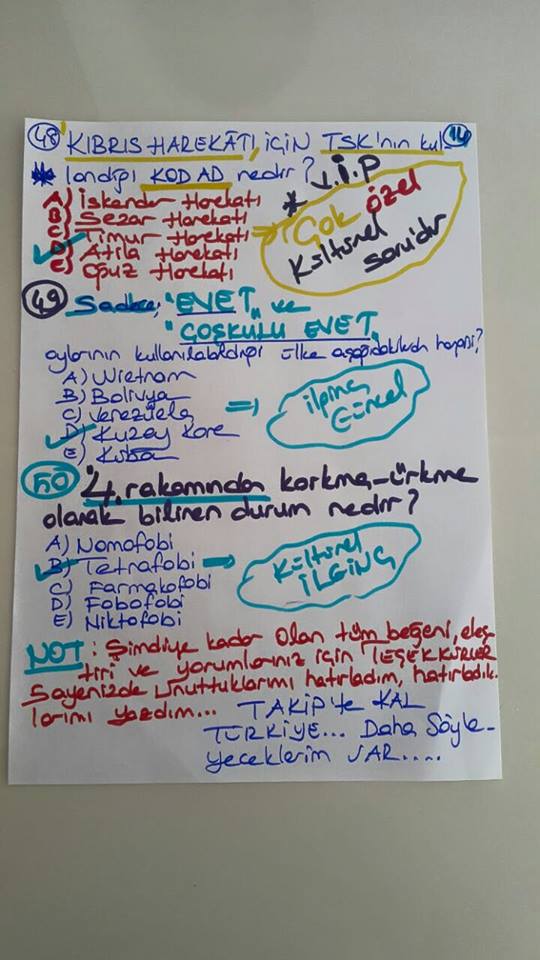 48 KIBRIS HAREKÂTI, için TSK'nın kul- 14
* landığı KOD AD nedir?
* V.İ.P
A) İskender Harekatı
B) Sezar Harekatı
C) Timur Harekatı => Çok özel
D) Atila Harekatı Kültürel
E) Oğuz Harekatı sorudur
49 Sadece; "EVET" ve
"COŞKULU EVET"
oylarının kullanılabildiği ülke aşağıdakilerden hangisi?
A) Wietnam
B) Bolivya
C) Venezüela => ilginç
D) Kuzey Kore Güncel
E) Küba
50 4. rakamından korkma-ürkme
olarak bilinen durum nedir?
A) Nomofobi
B) Tetrafobi → Kültürel
C) Farmakofobi İLGİNÇ
D) Fobofobi
E) Niktofobi
NOT: Şimdiye kadar olan tüm beğeni, eleş-
tiri ve yorumlarınız için TEŞEKKÜRLER
Sayenizde unuttuklarımı hatırladım, hatırladık-
larımı yazdım... TAKİP'te KAL
TÜRKİYE... Daha Söyle-
yeceklerim VAR.....